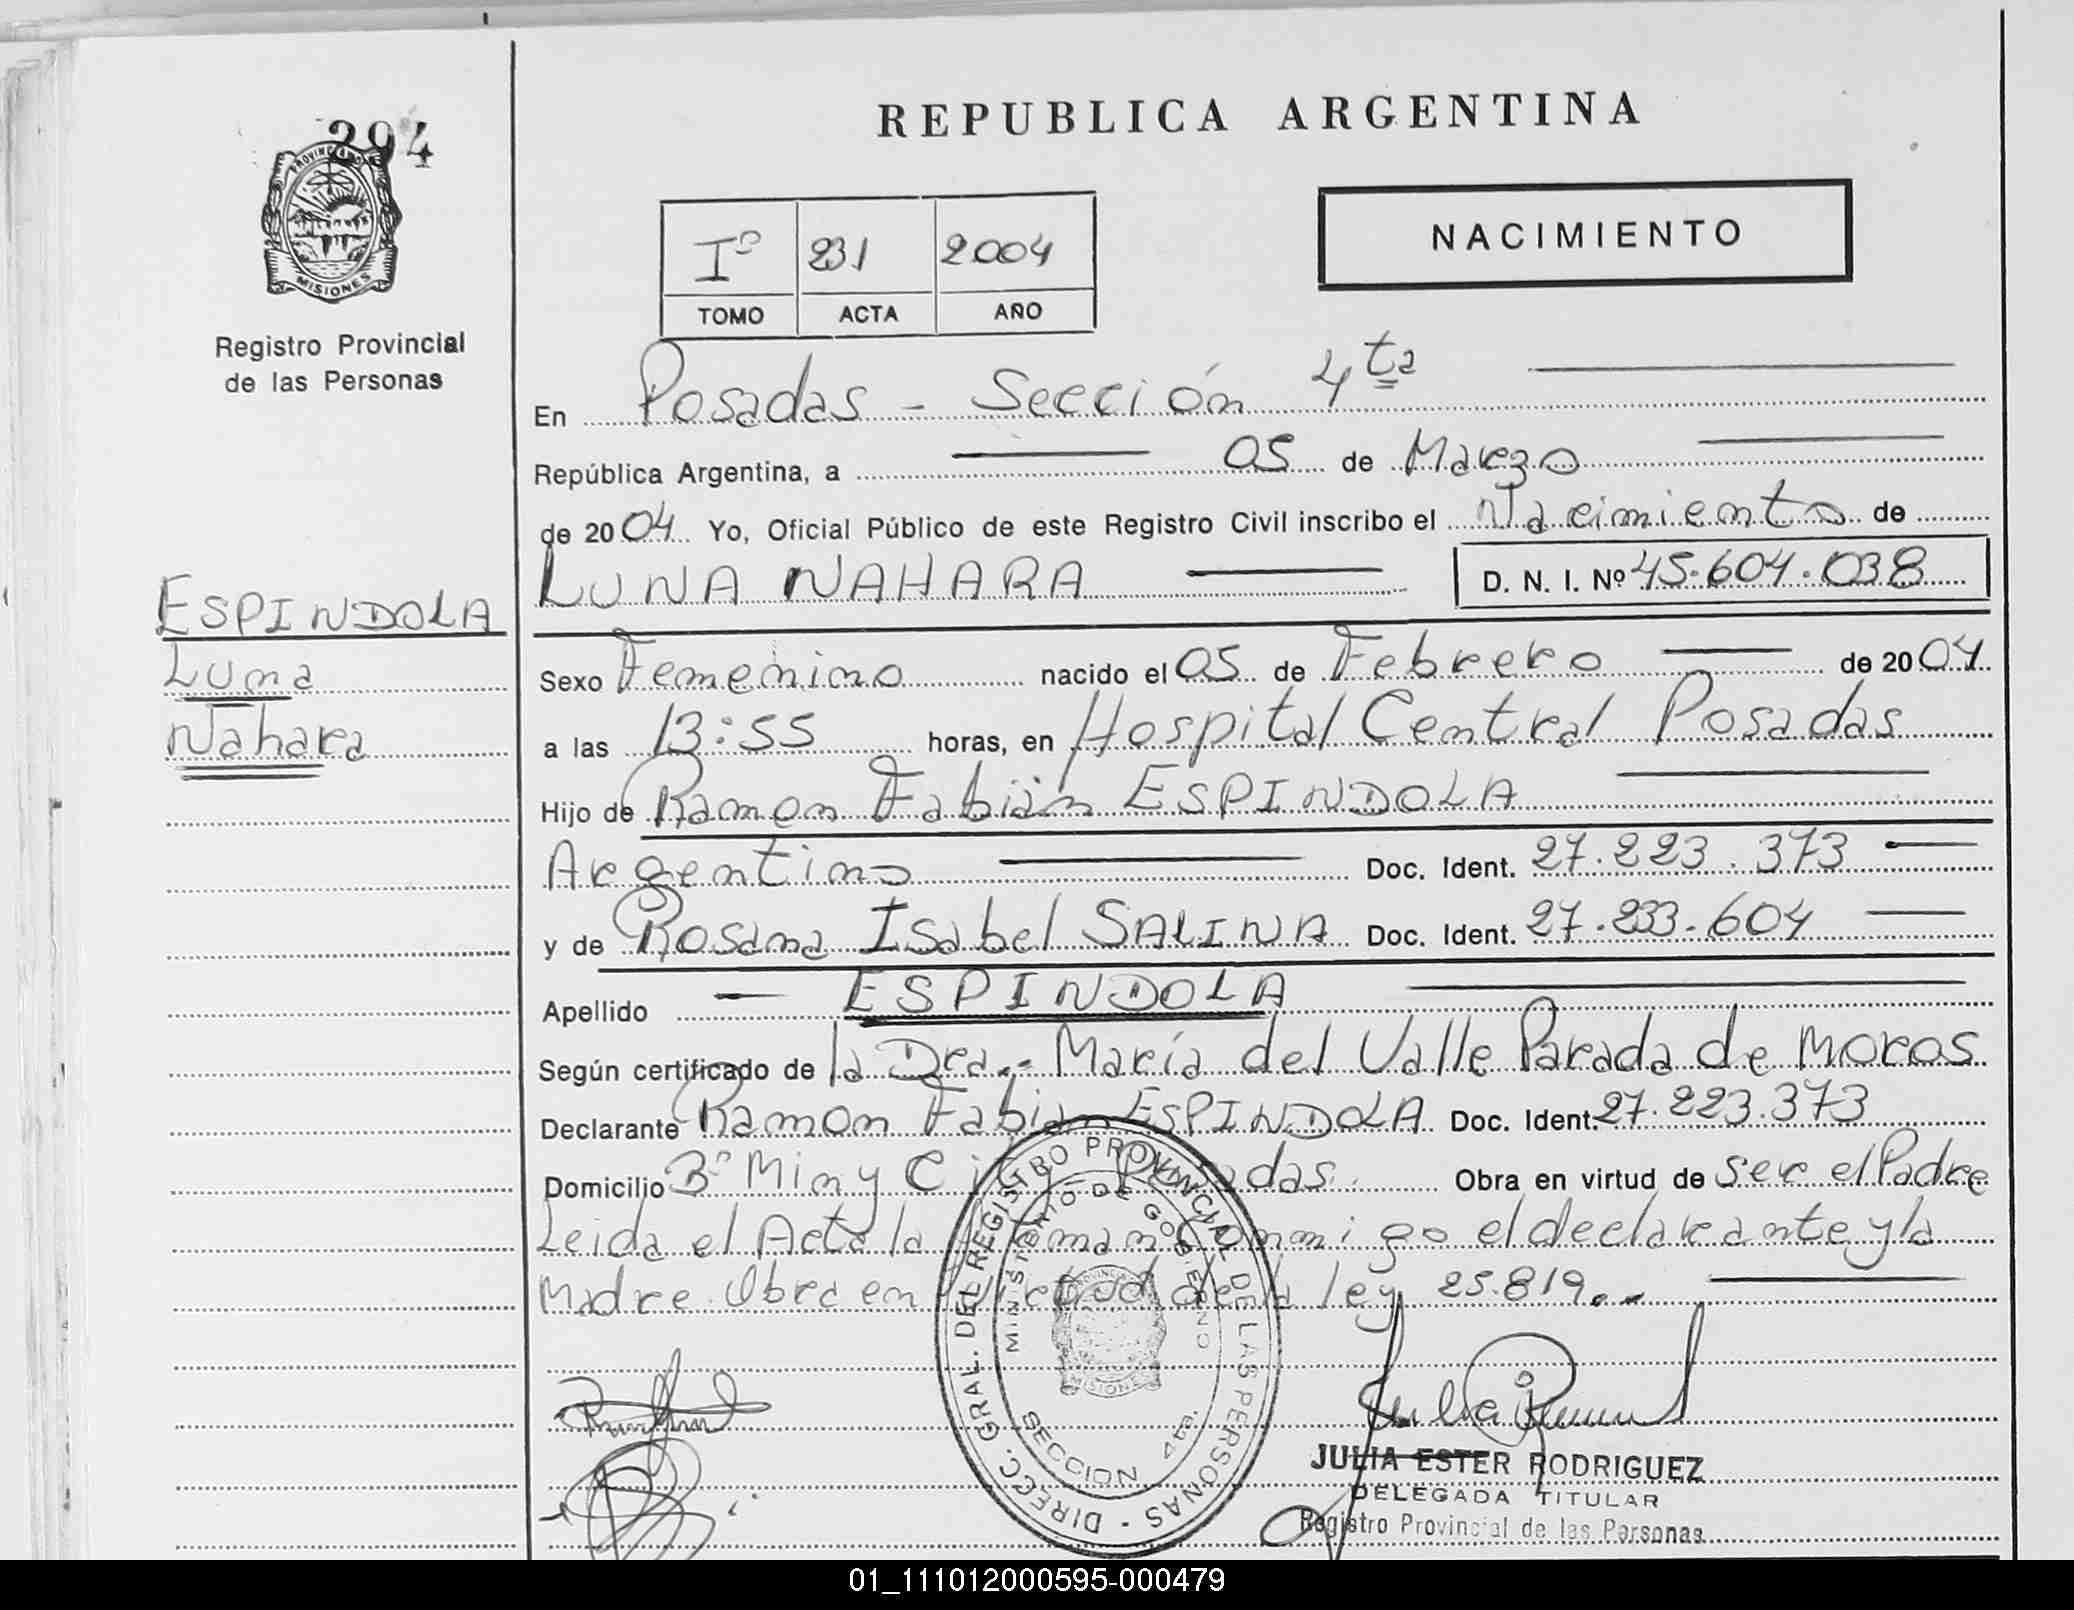 294
PROVINCIA DE
MISIONES
Registro Provincial
de las Personas
REPUBLICA ARGENTINA
Iº 231 2004
TOMO ACTA AÑO
NACIMIENTO
En Posadas - Sección 4ta
República Argentina, a 05 de Marzo
de 2004 Yo, Oficial Público de este Registro Civil inscribo el Nacimiento de
LUNA NAHARA D. N. I. Nº 45.604.038
ESPINDOLA
Luna
Nahara
Sexo Femenino nacido el 05 de Febrero de 2004
a las 13:55 horas, en Hospital Central Posadas
Hijo de Ramon Fabián ESPINDOLA
Argentino Doc. Ident. 27.223.373
y de Rosana Isabel SALINA Doc. Ident. 27.233.604
Apellido ESPINDOLA
Según certificado de la Dra.- María del Valle Parada de Moros
Declarante Ramon Fabian ESPINDOLA Doc. Ident. 27.223.373
Domicilio Bº Min y Posadas. Obra en virtud de ser el Padre
Leida el Acta la firman conmigo el declarante y la
Madre Obra en virtud de la ley 25.819.-
DIRECC. GRAL. DEL REGISTRO PROVINCIAL DE LAS PERSONAS -
MINISTERIO DE GOBIERNO
PROVINCIA
MISIONES
SECCION 4ta.
JULIA ESTER RODRIGUEZ
DELEGADA TITULAR
Registro Provincial de las Personas
01_111012000595-000479